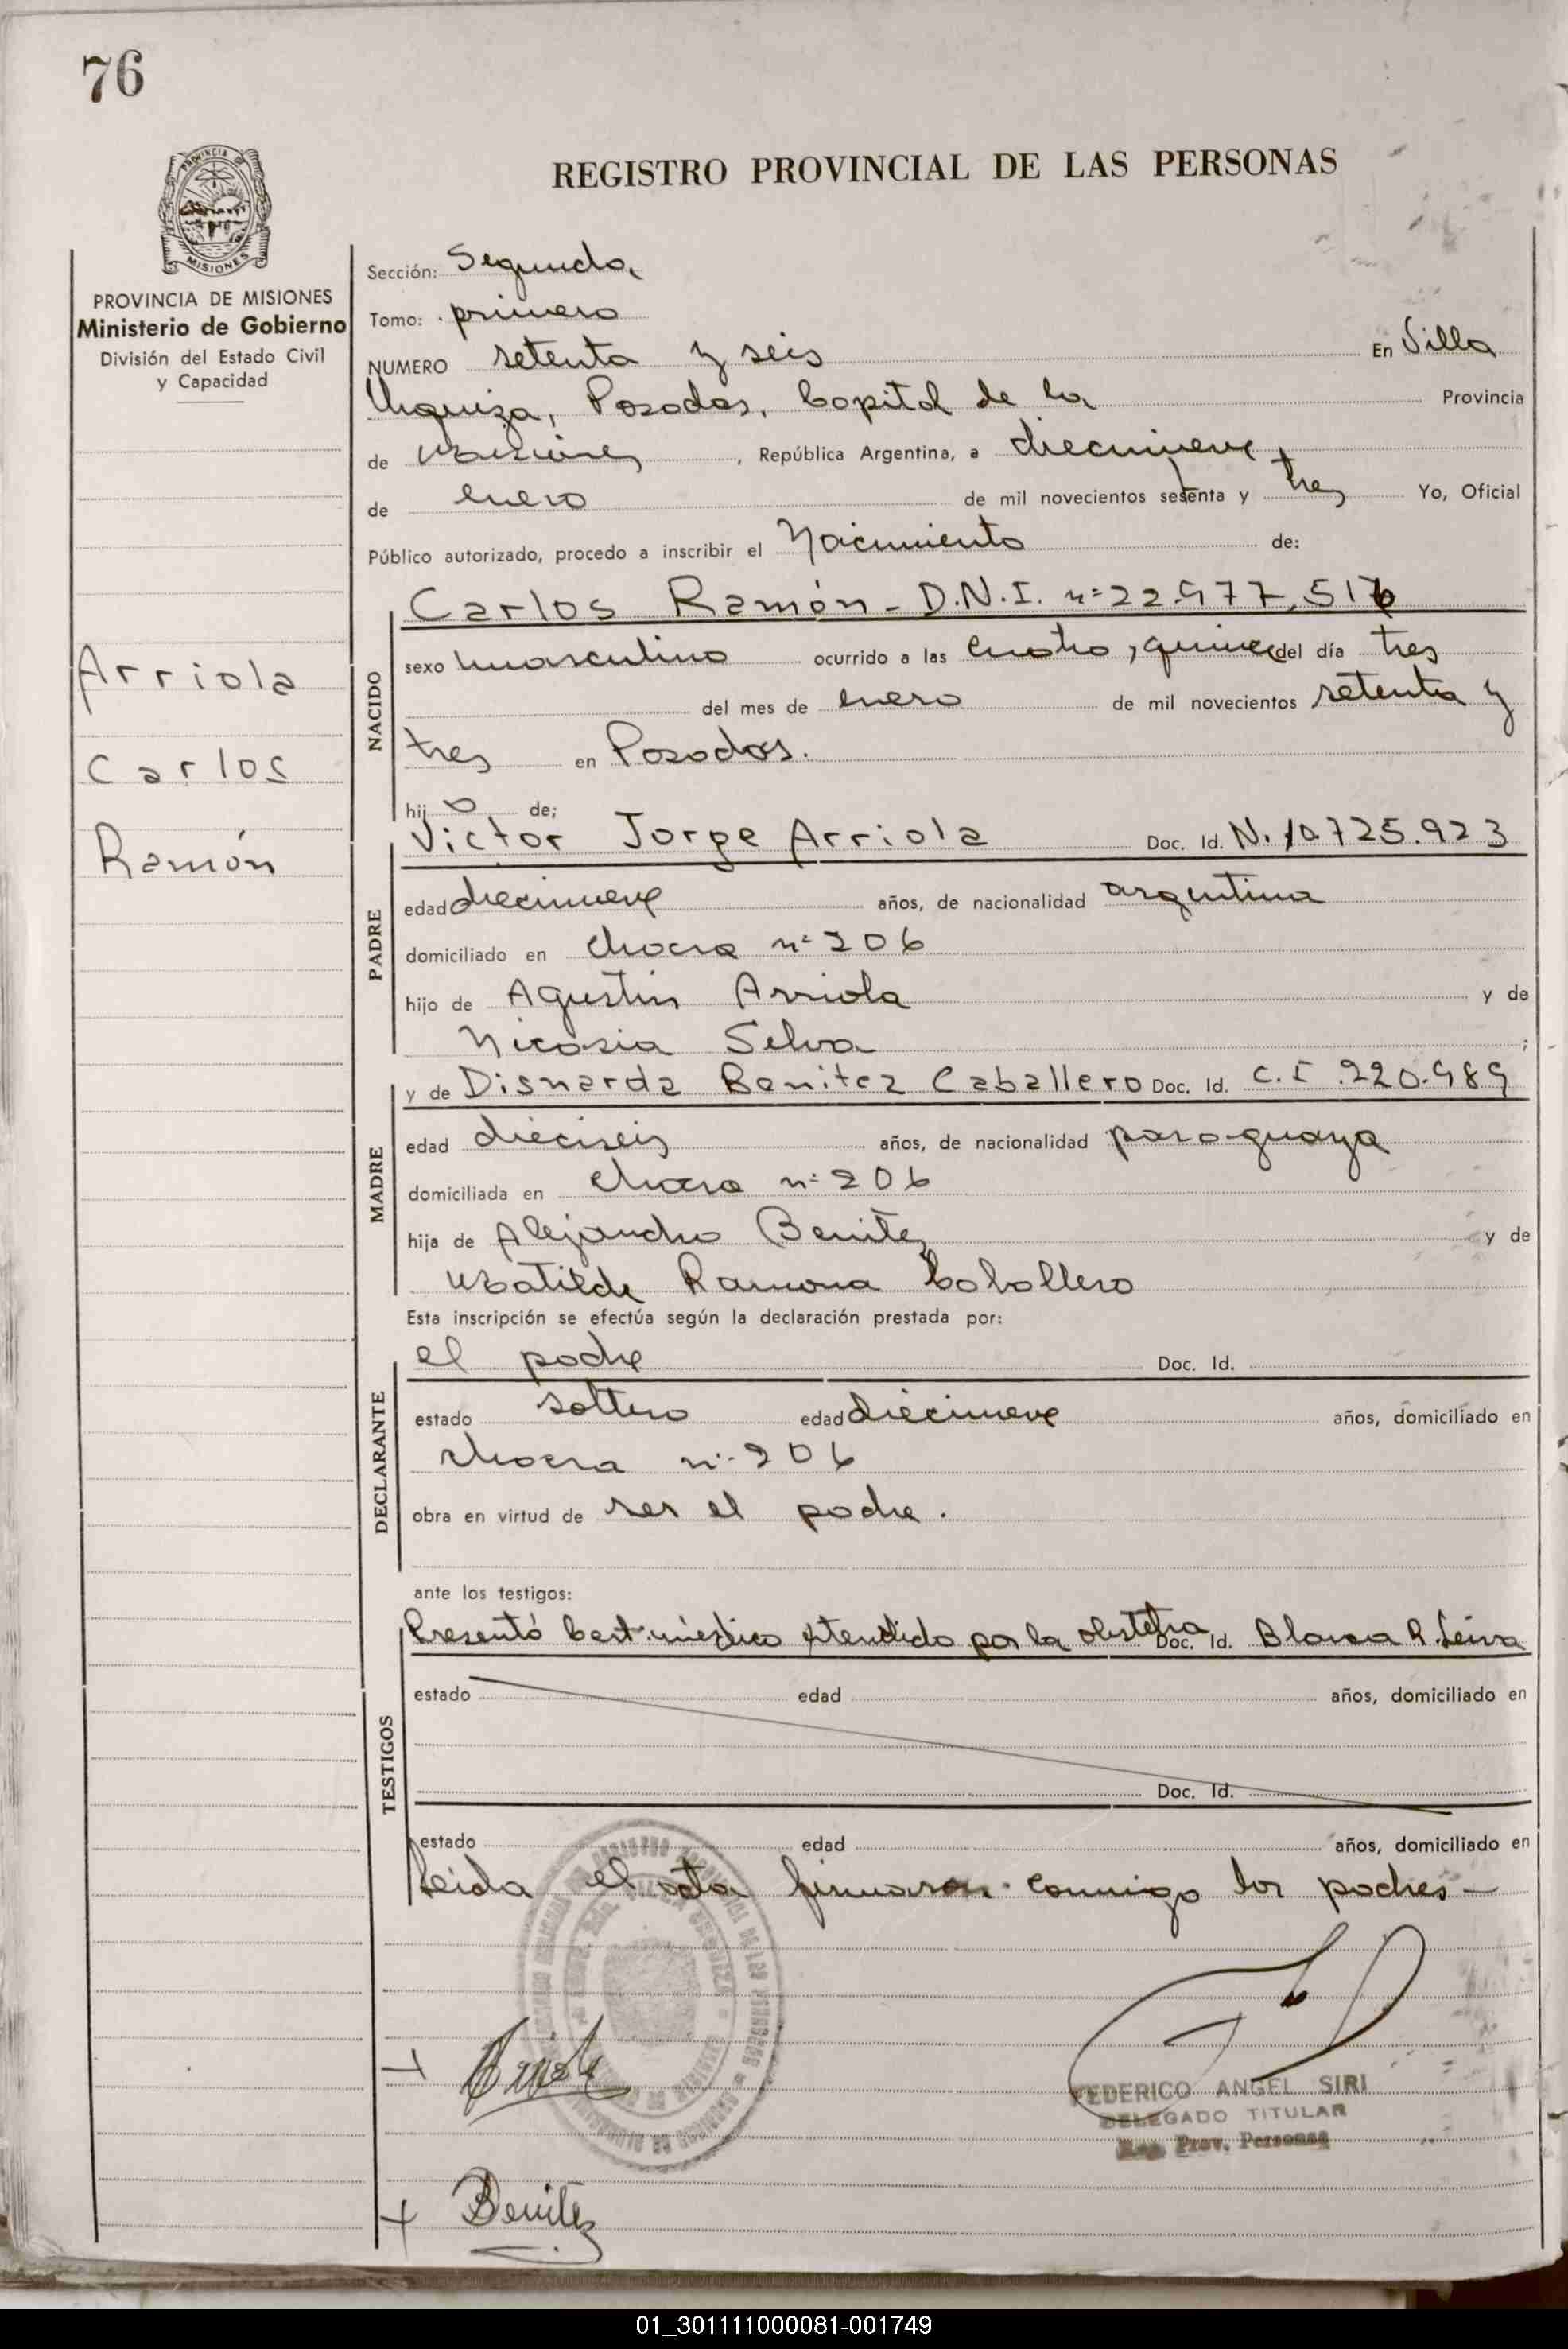 76
REGISTRO PROVINCIAL DE LAS PERSONAS
PROVINCIA DE
MISIONES
PROVINCIA DE MISIONES
Ministerio de Gobierno
División del Estado Civil
y Capacidad
Arriola
Carlos
Ramón
Sección: Segunda
Tomo: primero
NUMERO setenta y seis En Villa
Urquiza, Posadas, Capital de la Provincia
de Misiones, República Argentina, a diecinueve
de enero de mil novecientos setenta y tres Yo, Oficial
Público autorizado, procedo a inscribir el Nacimiento de:
NACIDO
Carlos Ramón - D.N.I. nº 22.977.516
sexo masculino ocurrido a las cuatro, quince del día tres
del mes de enero de mil novecientos setenta y
tres en Posadas.
hijo de;
PADRE
Victor Jorge Arriola Doc. Id. N. 10.725.923
edad diecinueve años, de nacionalidad argentina
domiciliado en chacra nº 206
hijo de Agustin Arriola y de
Nicasia Selva ;
MADRE
y de Disnarda Benitez Caballero Doc. Id. C.I. 220.989
edad dieciseis años, de nacionalidad paraguaya
domiciliada en chacra nº 206
hija de Alejandro Benitez y de
Matilde Ramona Caballero
Esta inscripción se efectúa según la declaración prestada por:
DECLARANTE
el padre Doc. Id.
estado soltero edad diecinueve años, domiciliado en
chacra nº 206
obra en virtud de ser el padre.
ante los testigos:
TESTIGOS
Presentó Cert. médico atendido por la obstetra Doc. Id. Blanca R. Leiva
estado edad años, domiciliado en
Doc. Id.
estado edad años, domiciliado en
Leida el acta firmaron conmigo los padres -
Arriola
FEDERICO ANGEL SIRI
DELEGADO TITULAR
Reg. Prov. Personas
Benitez
01_301111000081-001749